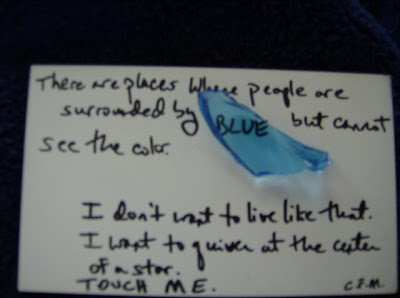 There are places where people are
surrounded by BLUE but cannot
see the color.
I don't want to live like that.
I want to quiver at the center
of a star.
TOUCH ME. C.E.M.